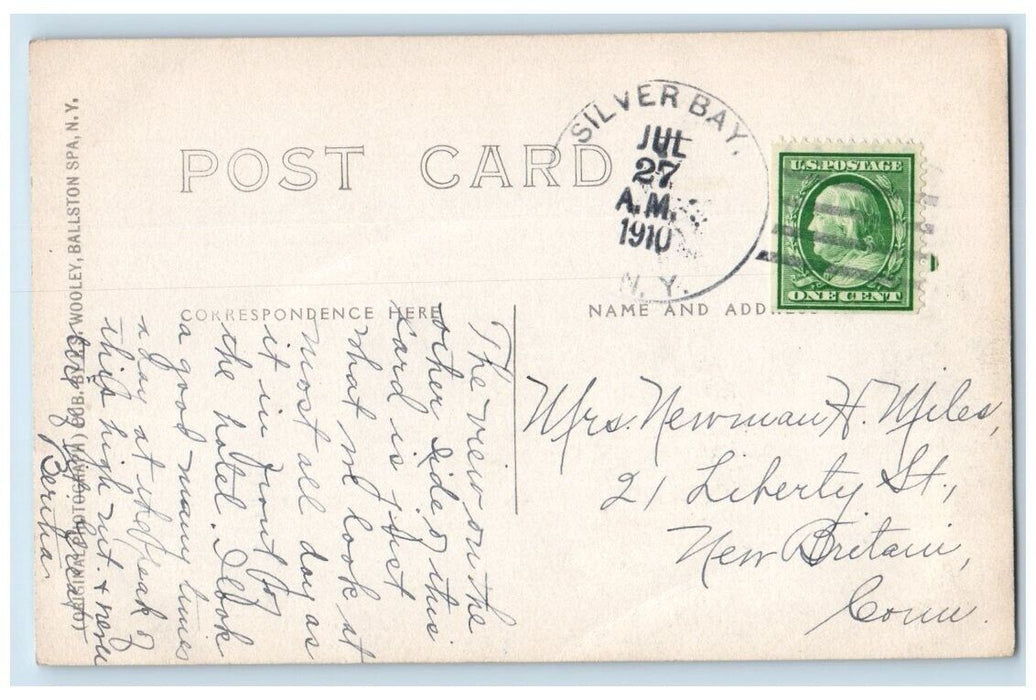 POST CARD
SILVER BAY,
JUL
27
A.M.
1910
N. Y.
U.S. POSTAGE
ONE CENT
CORRESPONDENCE HERE
NAME AND ADDRESS
(ORIGINAL PHOTOGRAPH) PUB. BY J.S. WOOLEY, BALLSTON SPA, N.Y.
The view on the
other side of this
card is just
what we look at
most all day as
it in front of
the hotel. I look
a good many times
a day at the peak of
this high mt. & never
Bertha.
Mrs. Newman H. Miles,
21 Liberty St.,
New Britain,
Conn.